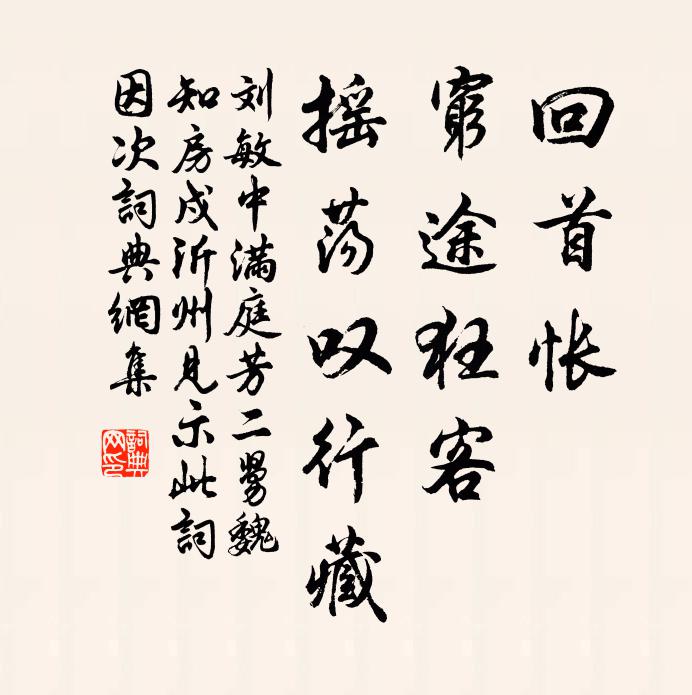 回首怅
穷途狂客
摇荡叹行藏
刘敏中满庭芳二舅魏
知房戍沂州见示此词
因次詞典網集
詞典
网印